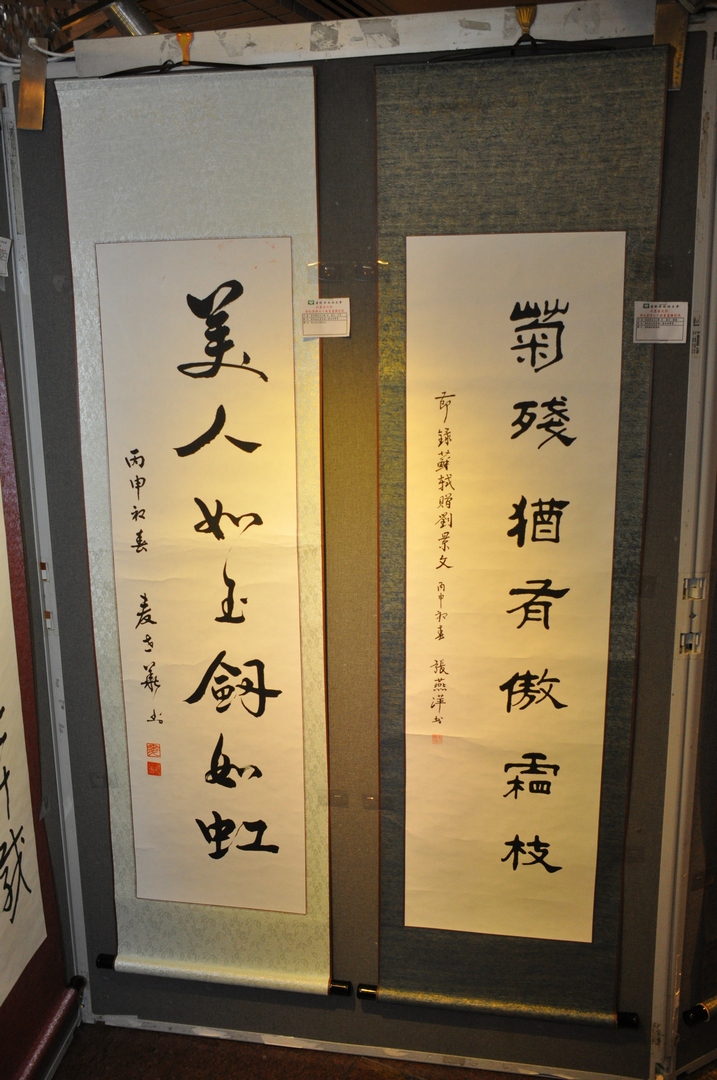 菊殘猶有傲霜枝
節錄蘇軾贈劉景文 丙申初春 張燕萍书
美人如玉劔如虹
丙申初春 麦志華书
十戲